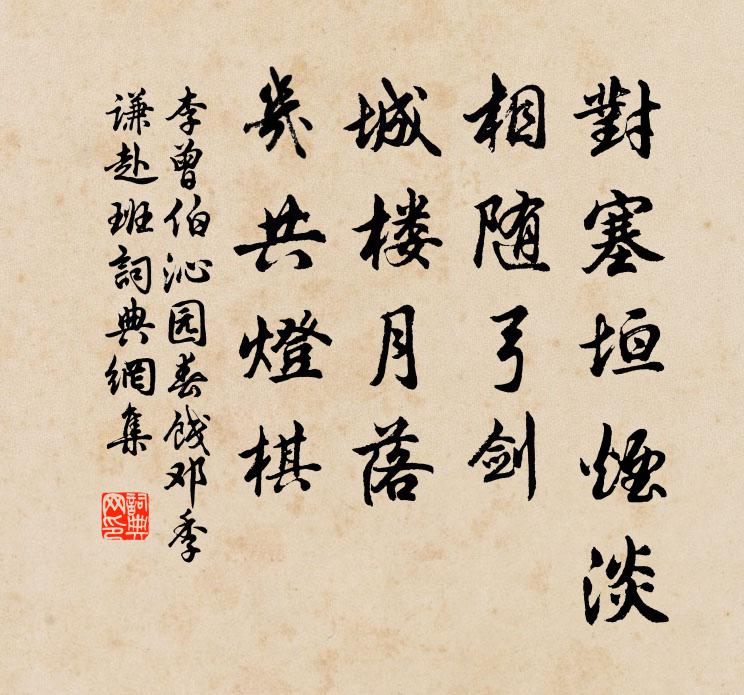 對塞垣煙淡
相随弓剑
城楼月落
幾共燈棋
李曾伯沁园春饯邓季
谦赴班詞典網集
詞典
网印